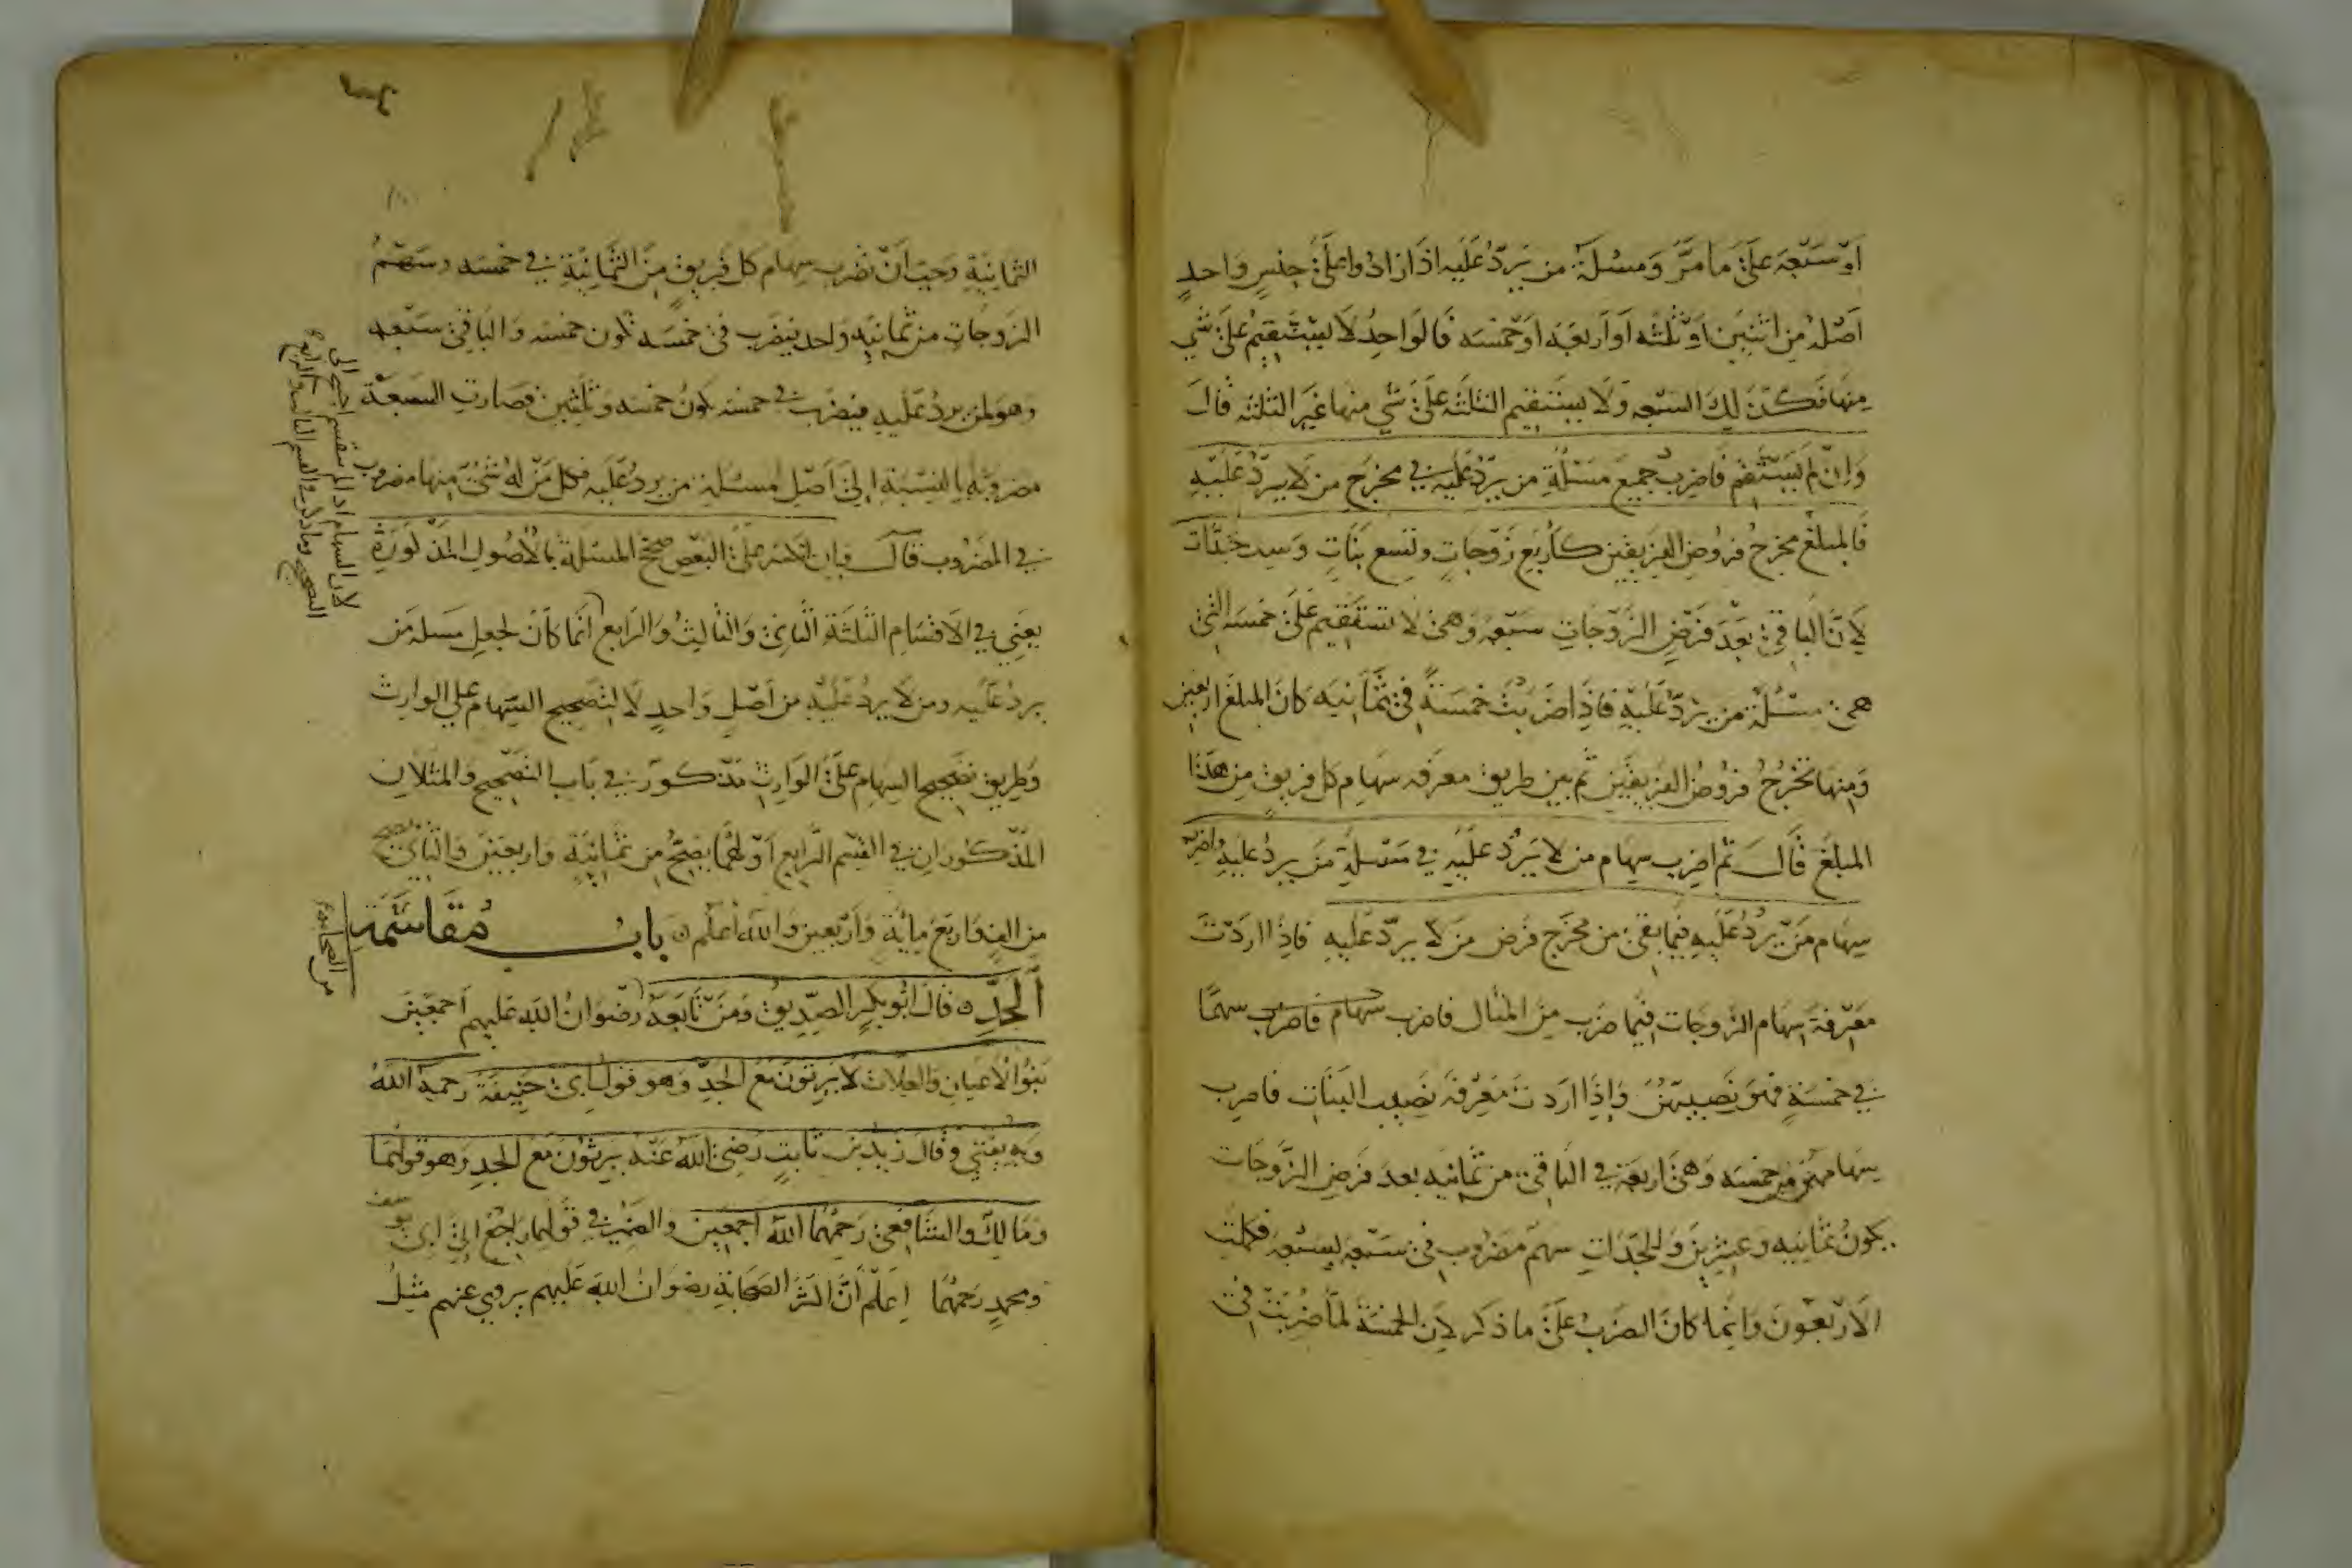 اَوْ سَبْعَة عَلىَ مَا مَرَّ وَمسْلَة من يَردّ عَلَيه اذَا زادُوا على جنسٍ وَاحدٍ
اَصْله مِن اثنينِ اَوْ ثلثه اَوْ اَربعَة اَوْ خمْسَه فَالوَاحِدُ لا يَسْتَقِيمُ عَلىَ شي
مِنهَا فكذلِكَ السَبْعه وَلا يستقيم الثلثة عَلىَ شي منهَا غَير الثلثه قال
وَاِنْ لم يَسْتَقِم فَاضرب جميعَ مَسْئلةِ من يَردّ عَليه في مخرَجِ من لا يردّ عَلَيْهِ
فَالمبلَغ مخرجُ فرُوض الفَريقين كاَربَع زَوْجاتٍ وتسع بَنَاتٍ وَست جَدّات
لاَنّ البَاقي بَعْدَ فَرَضِ الزَوْجَاتِ سَبْعه وَهىَ لا تستَقيم عَلىَ خمسَه التي
هى مسْئلة من يردّ عَليهِ فَاِذَا ضَربْتَ خمسَةً فى ثمَانِيَه كانَ المبلغ اربعين
وَمِنهَا تخرُجُ فرُوضُ الفريقَين ثم بين طريق معرفه سهَام كل فريق مِن هَذا
المبلغ قال ثم اضرب سِهَام من لا يَردّ عَلَيْهِ في مَسْئلةِ مَن يردّ عليهِ واضرب
سِهَام مَن يردّ عَليهِ فيما بقى من مخرَج فَرض مَن لا يردّ عَليهِ فاذا اردتَ
مَعْرفة سهَام الزوجَات فيمَا ضرب مِنَ المثال فاضرب سهام فاضرب سهمًا
في خمسَةٍ فهوَ نَصيبهُنَّ وَاِذَا اردتَ مَعْرفَة نَصِيب البنَاتِ فاضرب
سهَامهنّ من خمسَه وَهىَ اربعَة في البَاقي من ثمانيه بعدَ فرَضِ الزَوجَات
يكونُ ثمَانيه وعشرينَ وَللجَدّاتِ سهم مضروب فى سَبْعَه بسَبْعَه فكملت
الاَرْبَعُونَ وَاِنّما كانَ الضربُ عَلىَ ما ذكر لاَن الخمسَة لمّا ضُربَتْ في
الثمانِيَةِ وَجبَ اَنْ تضرب سِهَام كل فَريقٍ مِنَ الثمَانِيَةِ في خمسَه وسَهم
الزوجَاتِ من ثمانيه وَاحد يُضرَب فى خمسَه تكون خمسَه وَالبَاقي سَبْعه
وَهوَ لمن يردّ عَلَيهِ فيضرَب في خمسَه يكونُ خمسَه وَثلثين فصَارت السبعَة
مضروبة بالنسبَةِ اِلىَ اَصْلِ مسئلةِ من يردّ عَليه فكل مَنْ لهُ شئ منهَا مضرُوب
في المضرُوب قال فَاِن انكسَر عَلىَ البَعْضِ صحح المسْئلة بالاُصُول المذكورَةِ
يعنى في الاَقسَامِ الثلثَة الثاني وَالثالِثُ وَالرابع اِنما كانَ لجعل مَسئلة مَن
يردّ عَليه ومن لا يردّ عَليْهِ من اَصْلٍ وَاحدٍ لا لتصحيح السِهَام عَلى الوارِث
وَطريق تصحيح السِهَام عَلىَ الوَارِثِ مذكور في بَابِ التصحيح وَالمثالان
المذكورانِ في القسْم الرابع اَوّلهمَا يصحّ مِن ثمَانيَةٍ وَاَربَعين وَالثاني يصح
مِن اَلفٍ وَاَربَع مِائَةٍ وَاَرْبَعين وَالله اَعلم بابُ مُقَاسَمَةِ
اَلجَدِّ قالَ اَبُو بَكرٍ الصِدِّيق وَمَنْ تَابَعَهُ رضْوَانُ اللهِ عَليهم اَجمَعينَ
بَنُوا الاَعيَانِ وَالعلات لا يَرِثونَ مَعَ الجدِّ وَهو قول اَبى حَنِيفَة رحمهُ اللهُ
وَبهِ يُفْتي وَقالَ زَيد بن ثابتٍ رَضىَ اللهُ عَنهُ يَرِثُونَ مَعَ الجدِ وَهو قولهمَا
وَمَالِك وَالشافعى رَحِمهُم الله اَجمَعين وَالضمير في قَولهما رَاجعٌ اِلىَ اَبى يوسف
ومحمدٍ رَحمَهُمَا اِعلمْ اَنَّ اكثر الصَحَابَةِ رضوَانُ اللهِ عَليهم يروى عنهم مثلُ
لان السهام اذا لم ينقسم احتيج الى
التصحيح وما ذكر في القسم الثالث والرابع
من الصحابة